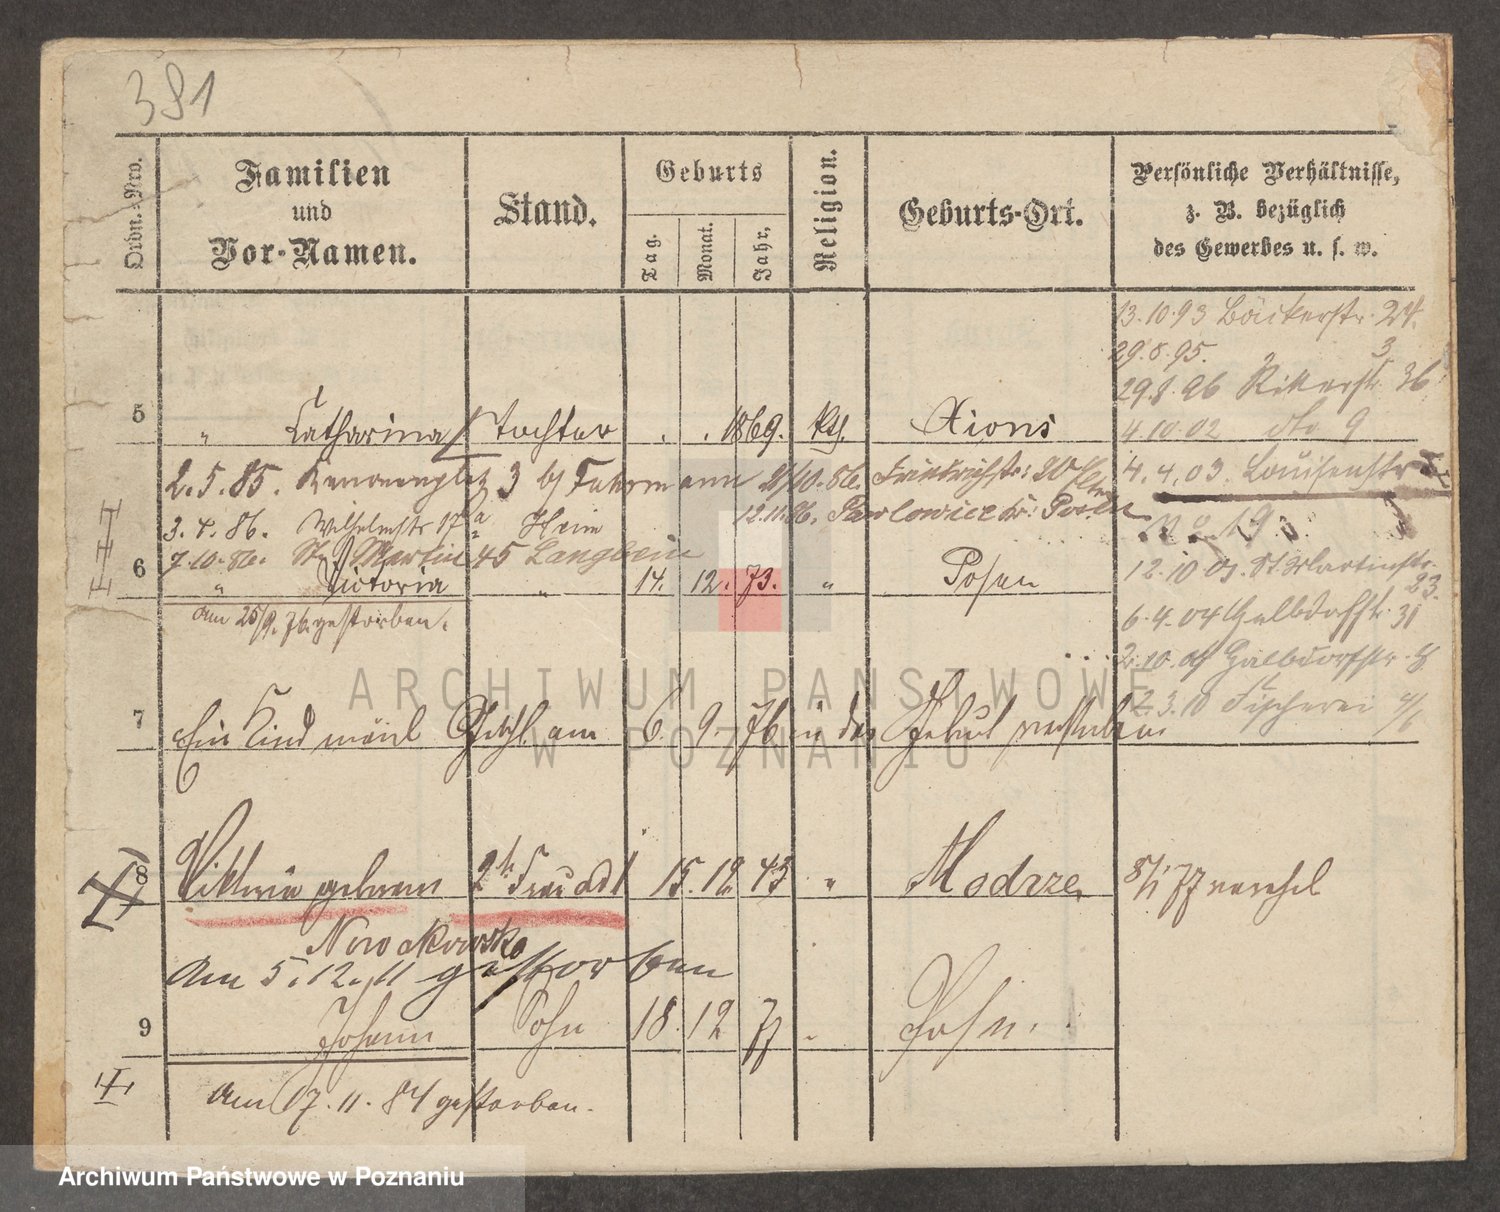 381
Ordn.-Nro.
Familien
und
Vor-Namen.
Stand.
Geburts
Tag.
Monat.
Jahr.
Religion.
Geburts-Ort.
Persönliche Verhältnisse,
z. B. bezüglich
des Gewerbes u. s. w.
13.10.93 Bäckerstr. 24.
29.8.95. 3
29.9.96 Ritterstr. 36
4.10.02 do 9
5 " Catharina Tochter . . 1869. kth. Xions
4.4.03. Louisenstr
No 19
2.5.85. 3 b/ Fuhrmann 21/10.86. Friedrichstr: 20
12.11.86. Pawlowicz Posen
3.4.86. Wilhelmstr 17a Heim
7.10.86. St. Martin 45 Langbein
6 " Victoria " 14. 12. 73. " Posen
12.10.03. St Martinstr. 23.
am 25/9. 76. gestorben.
6.4.04 Halbdorfstr. 31
2.10.04 Halbdorfstr. 8
7 Ein Kind männl Geschl. am 6. 9 76 in der Geburt verstorben
2.3.10 Fischerei 4/6
8 Viktoria geborene 2te Frau ad 1 15. 12 43 " Modrze 8/1 77 verehel
Nowakowska
Am 5.12.11 gestorben
9 Johann Sohn 18. 12 77 " Posen.
Am 17.11.84 gestorben.
ARCHIWUM PAŃSTWOWE
W POZNANIU
Archiwum Państwowe w Poznaniu